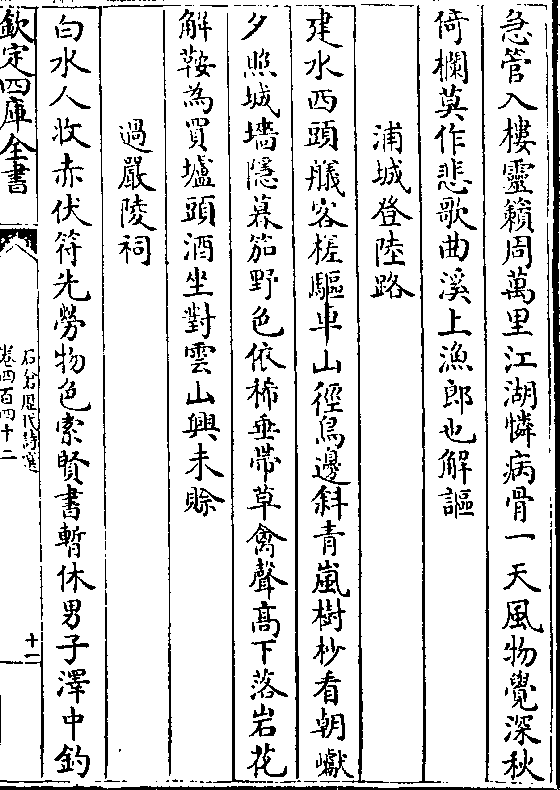 急管入樓靈籟周萬里江湖憐病骨一天風物覺深秋
倚欄莫作悲歌曲溪上漁郎也解謳
浦城登陸路
建水西頭艤客槎驅車山徑鳥邊斜青嵐樹杪看朝巘
夕照城墻隱暮笳野色依稀垂帶草禽聲高下落岩花
解鞍為買壚頭酒坐對雲山興未賖
過嚴陵祠
白水人收赤伏符先勞物色索賢書暫休男子澤中釣
欽定四庫全書
石倉歷代詩選
卷四百四十二
十一